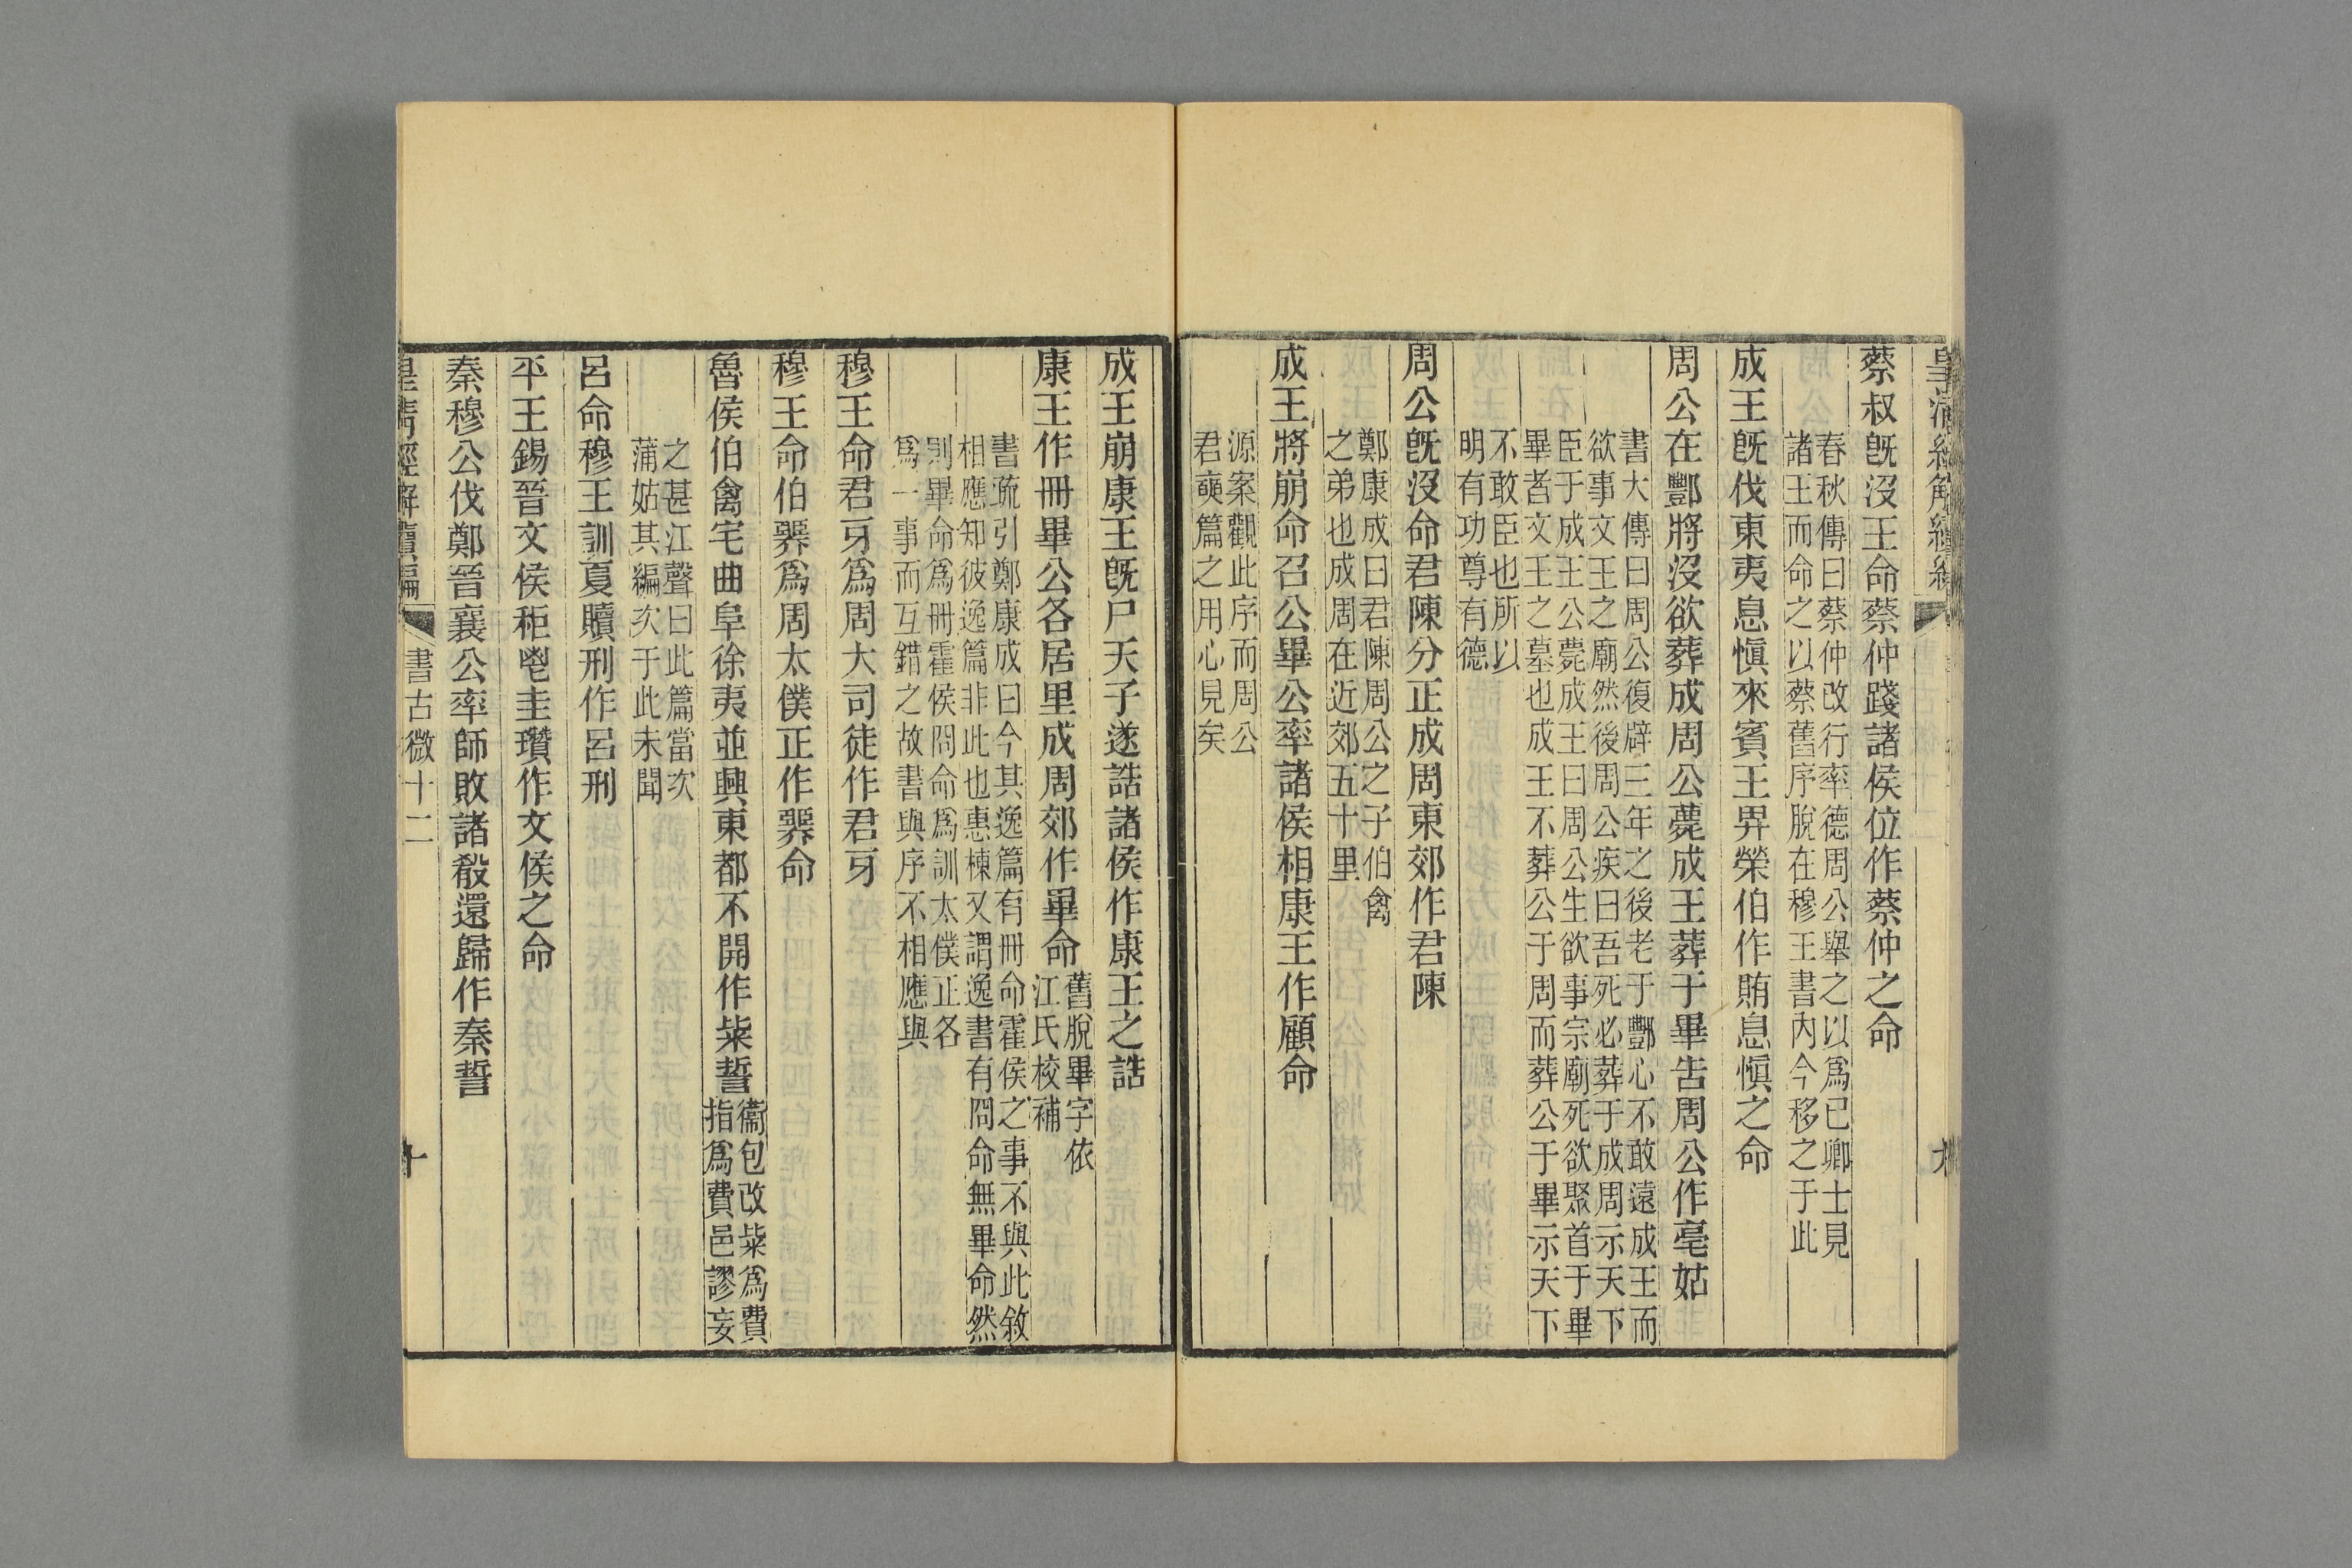 蔡叔旣沒王命蔡仲踐諸侯位作蔡仲之命
春秋傳曰蔡仲改行率德周公舉之以爲已卿士見
諸王而命之以蔡舊序脫在穆王書內今移之于此
成王旣伐東夷息愼來賓王畀榮伯作賄息愼之命
周公在酆將沒欲葬成周公薨成王葬于畢告周公作亳姑
書大傳曰周公復辟三年之後老于酆心不敢遠成王而
欲事文王之廟然後周公疾曰吾死必葬于成周示天下
臣于成王公薨成王曰周公生欲事宗廟死欲聚首于畢
畢者文王之墓也成王不葬公于周而葬公于畢示天下
不敢臣也所以
明有功尊有德
周公旣沒命君陳分正成周東郊作君陳
鄭康成曰君陳周公之子伯禽
之弟也成周在近郊五十里
成王將崩命召公畢公率諸侯相康王作顧命
源案觀此序而周公
君奭篇之用心見矣
成王崩康王旣尸天子遂誥諸侯作康王之誥
康王作冊畢公各居里成周郊作畢命
舊脫畢字依
江氏校補
書疏引鄭康成曰今其逸篇有冊命霍侯之事不與此敘
相應知彼逸篇非此也惠棟又謂逸書有冏命無畢命然
則畢命爲冊霍侯冏命爲訓太僕正各
爲一事而互錯之故書與序不相應與
穆王命君牙爲周大司徒作君牙
穆王命伯臩爲周太僕正作臩命
魯侯伯禽宅曲阜徐夷並興東都不開作粊誓
衞包改粊爲費
指爲費邑謬妄
之甚江聲曰此篇當次
蒲姑其編次于此未聞
呂命穆王訓夏贖刑作呂刑
平王錫晉文侯秬鬯圭瓚作文侯之命
秦穆公伐鄭晉襄公率師敗諸殽還歸作秦誓
皇淸經解續編
書古微十二
十